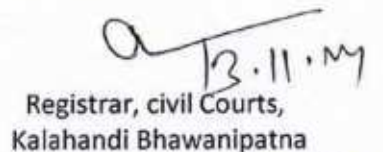 13.11.14
Registrar, civil Courts,
Kalahandi Bhawanipatna